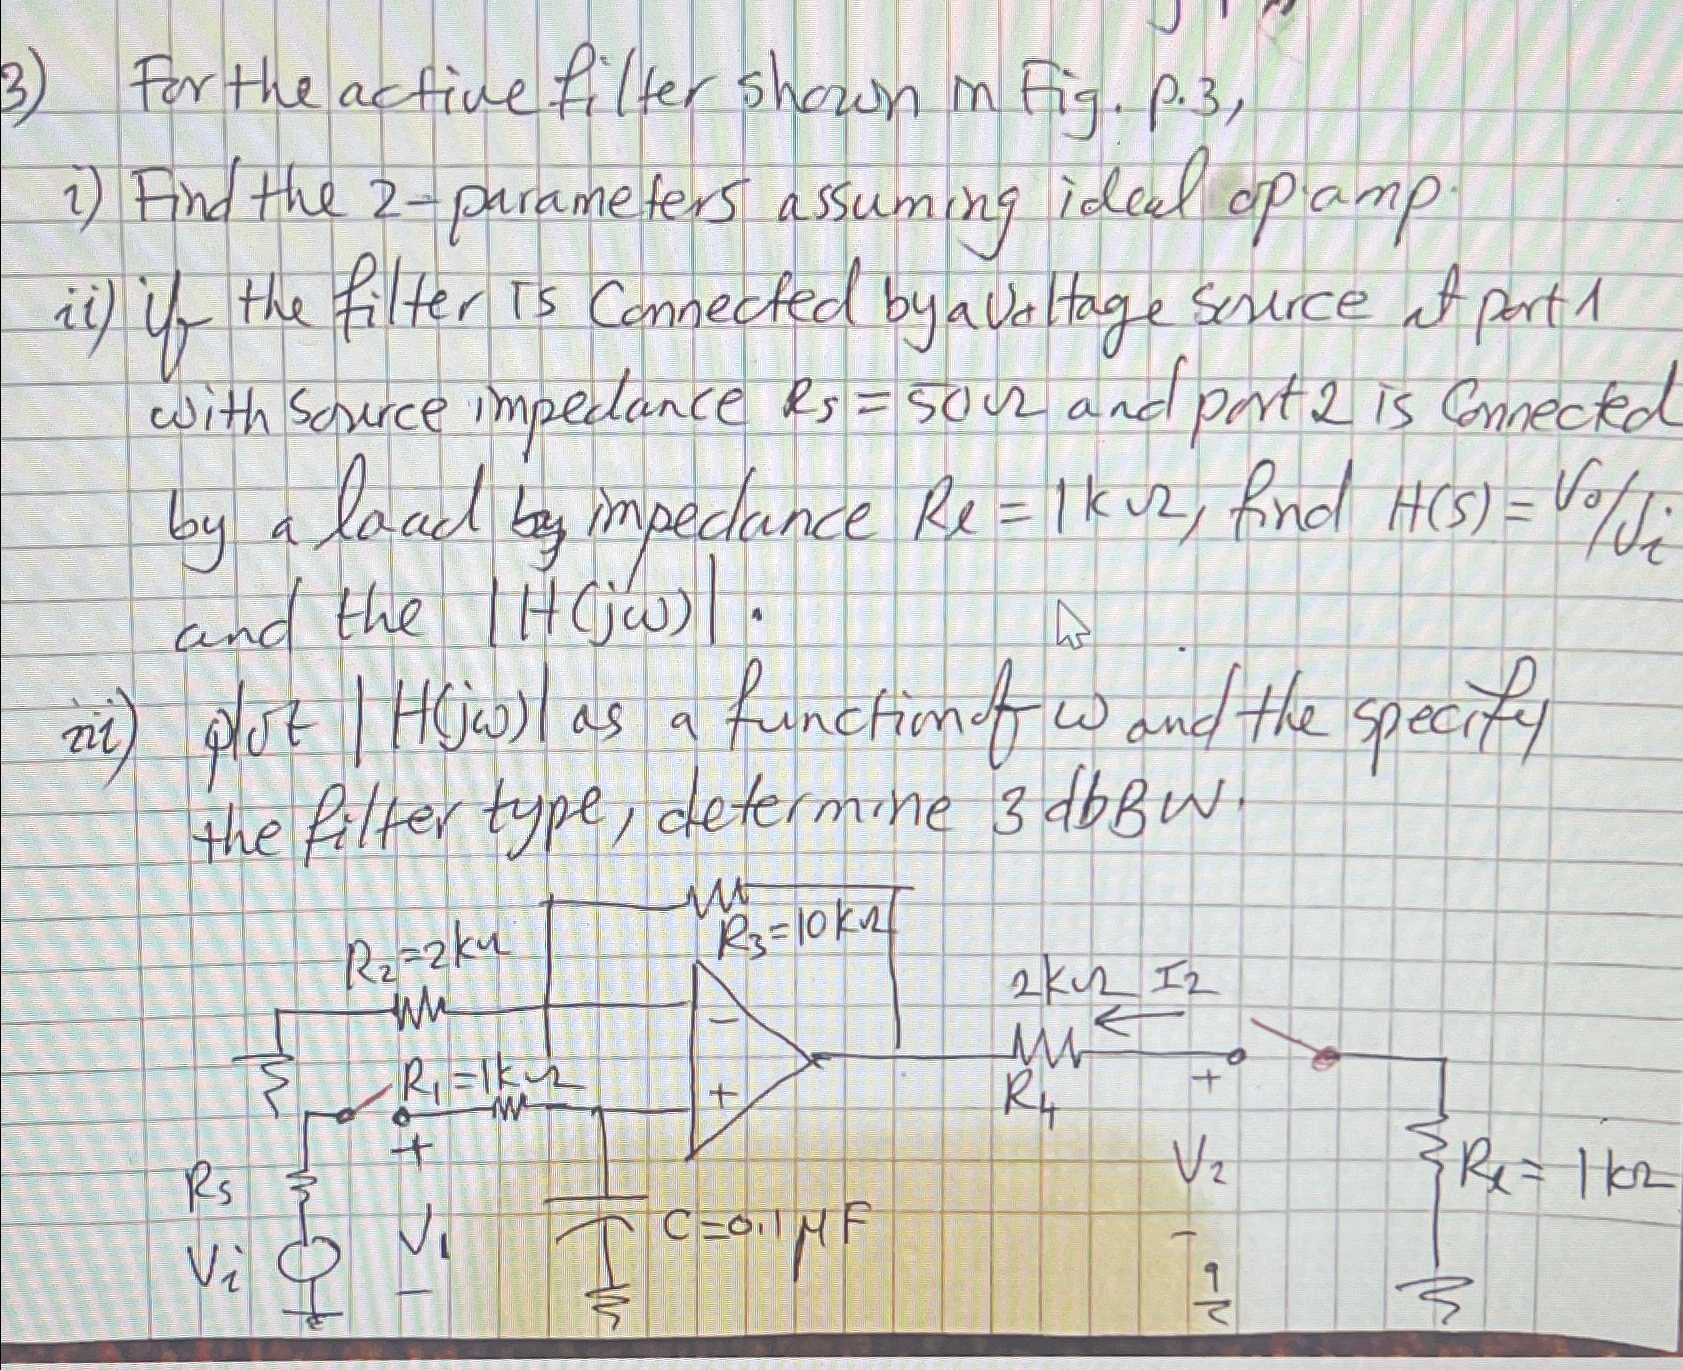 3) For the active filter shown in Fig. p.3,
i) Find the z-parameters assuming ideal op amp.
ii) if the filter is Connected by a Voltage source at port 1
with source impedance Rs = 50Ω and port 2 is Connected
by a load by impedance Rℓ = 1kΩ, find H(s) = Vo/Vi
and the |H(jω)|.
iii) plot |H(jω)| as a function of ω and the specify
the filter type, determine 3 db BW.
R3=10kΩ
R2=2kΩ
2kΩ I2
−
R1=1kΩ
+
R4
+
+
Rs
V2
Rℓ = 1kΩ
Vi
V1
C=0.1μF
−
−